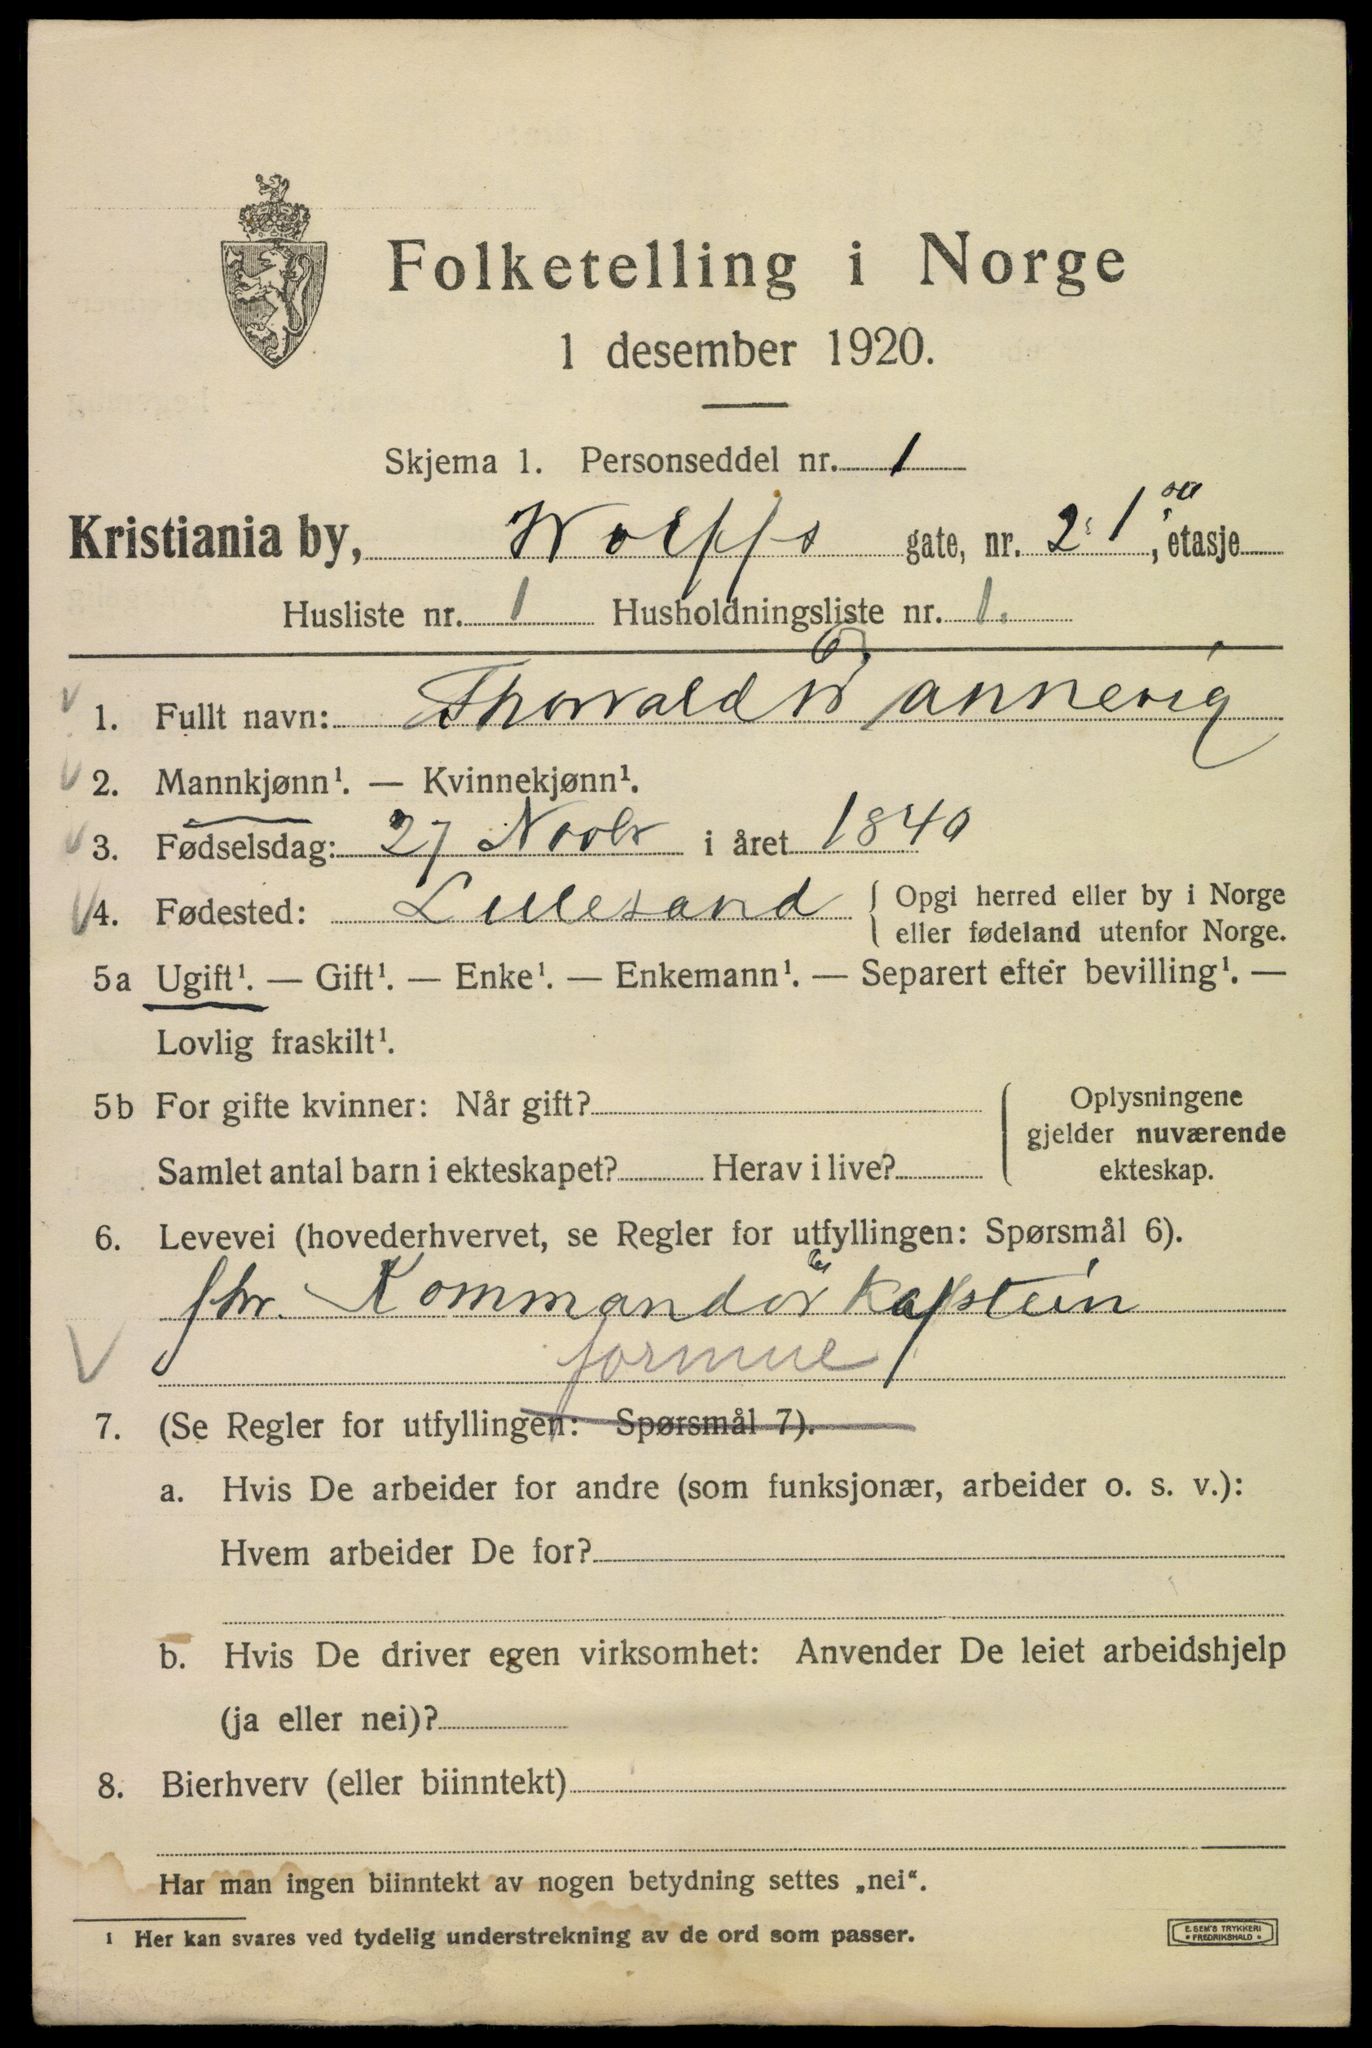 Folketelling i Norge
1 desember 1920.
Skjema 1. Personseddel nr. 1
Kristiania by, Wolffs gate, nr. 2, 1 etasje
Husliste nr. 1 Husholdningsliste nr. 1.
1. Fullt navn: Thorvald Dannevig
2. Mannkjønn¹. — Kvinnekjønn¹.
3. Fødselsdag: 27 Novbr i året 1840
4. Fødested: Lillesand { Opgi herred eller by i Norge
eller fødeland utenfor Norge.
5a Ugift¹. — Gift¹. — Enke¹. — Enkemann¹. — Separert efter bevilling¹. —
Lovlig fraskilt¹.
5b For gifte kvinner: Når gift?
Samlet antal barn i ekteskapet? Herav i live?
Oplysningene
gjelder nuværende
ekteskap.
6. Levevei (hovederhvervet, se Regler for utfyllingen: Spørsmål 6).
fhv. Kommandörkaptein
formue
7. (Se Regler for utfyllingen: Spørsmål 7).
a. Hvis De arbeider for andre (som funksjonær, arbeider o. s. v.):
Hvem arbeider De for?
b. Hvis De driver egen virksomhet: Anvender De leiet arbeidshjelp
(ja eller nei)?
8. Bierhverv (eller biinntekt)
Har man ingen biinntekt av nogen betydning settes „nei“.
¹ Her kan svares ved tydelig understrekning av de ord som passer.
E. SEM'S TRYKKERI
FREDRIKSHALD